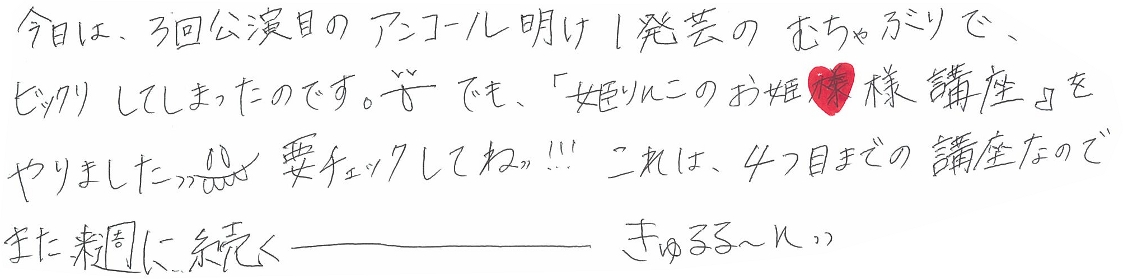 今日は、3回公演目のアンコール明け1発芸のむちゃぶりで、
ビックリしてしまったのです。でも、「姫りんこのお姫様講座』を
やりました〃要チェックしてね〃!!!これは、4つ目までの講座なので
また来週に続く――――きゅるる〜ん〃